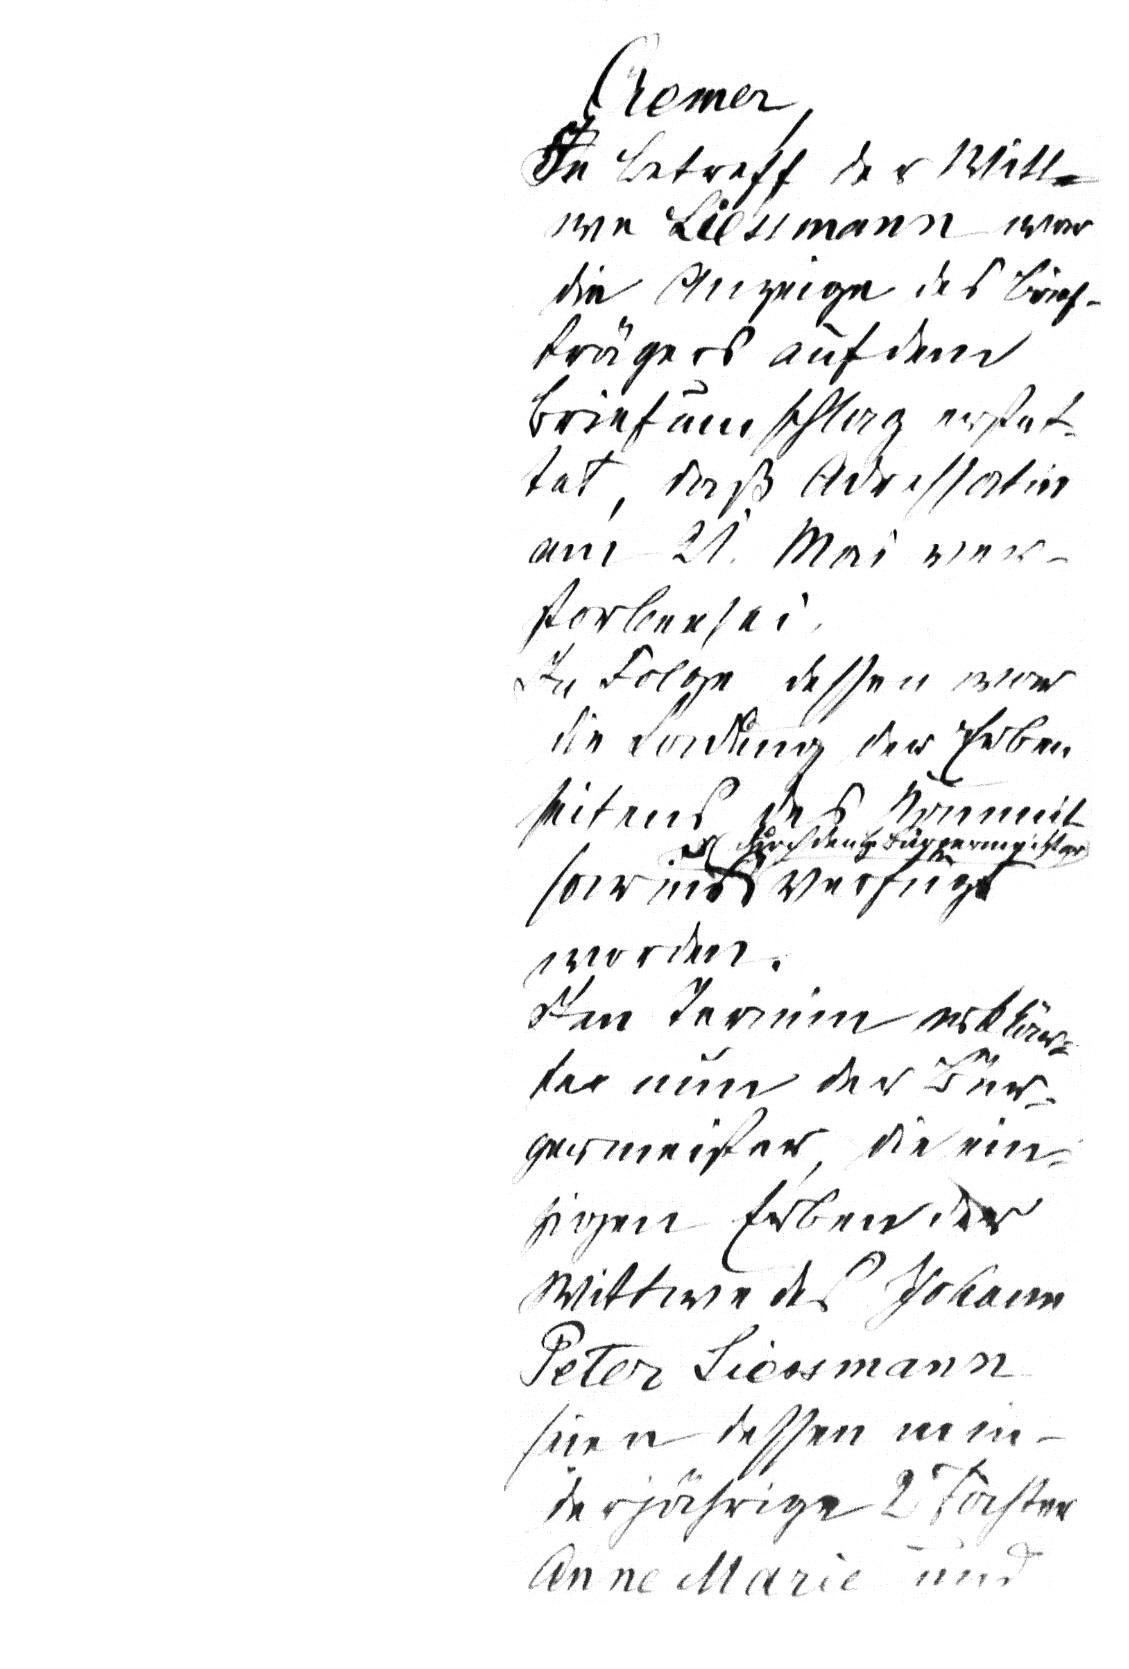 Cremer,
In betreff der Witt-
we Liessmann war
die Anzeige des Brief-
trägers auf dem
Briefumschlag erstat-
tet, daß Adressatin
am 21. Mai ver-
storben sei.
In Folge dessen war
die Ladung der Erben
seitens des Kommis-
durch den Bürgermeister
sarius verfügt
worden.
Im Termin erklär-
te nun der Bür-
germeister, die ein-
zigen Erben der
Wittwe des Johann
Peter Liessmann
seien dessen min-
derjährige 2 Töchter
Anne Marie und